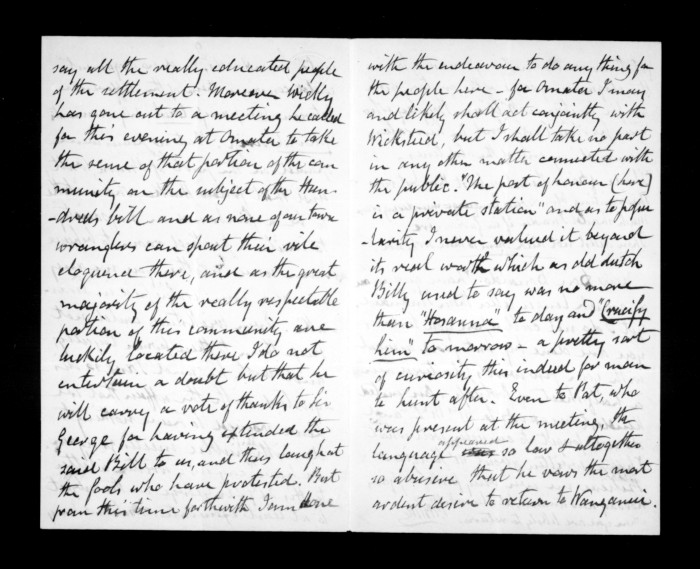 say all the really educated people
of the settlement. Moreover Wickly
has gone out to a meeting he called
for this evening at Omata to take
the sense of that portion of the com
munity on the subject of the Hun-
-dreds bill and as none of our town
wranglers can spout their vile
eloquence there, and as the great
majority of the really respectable
portion of this community are
luckily located there I do not
entertain a doubt but that he
will carry a vote of thanks to Sir
George for having extended the
said Bill to us, and thus laugh at
the fools who have protested. But
from this time forthwith I am done
with the endeavour to do any thing for
the people here - for Omata I may
and likely shall act conjointly with
Wicksteed, but I shall take no part
in any other matter connected with
the public. "The post of honour (here)
is a private station" and as to popu
-larity I never valued it beyond
its real worth which as old dutch
Billy used to say was no more
than "Hosanna" to day and "Crucify
him" to morrow - a pretty sort
of curiosity this indeed for man
to hunt after. Even to Pat, who
was present at the meeting, the
language appeared so low & altogether
so abusive that he vows the most
ardent desire to return to Wanganui.